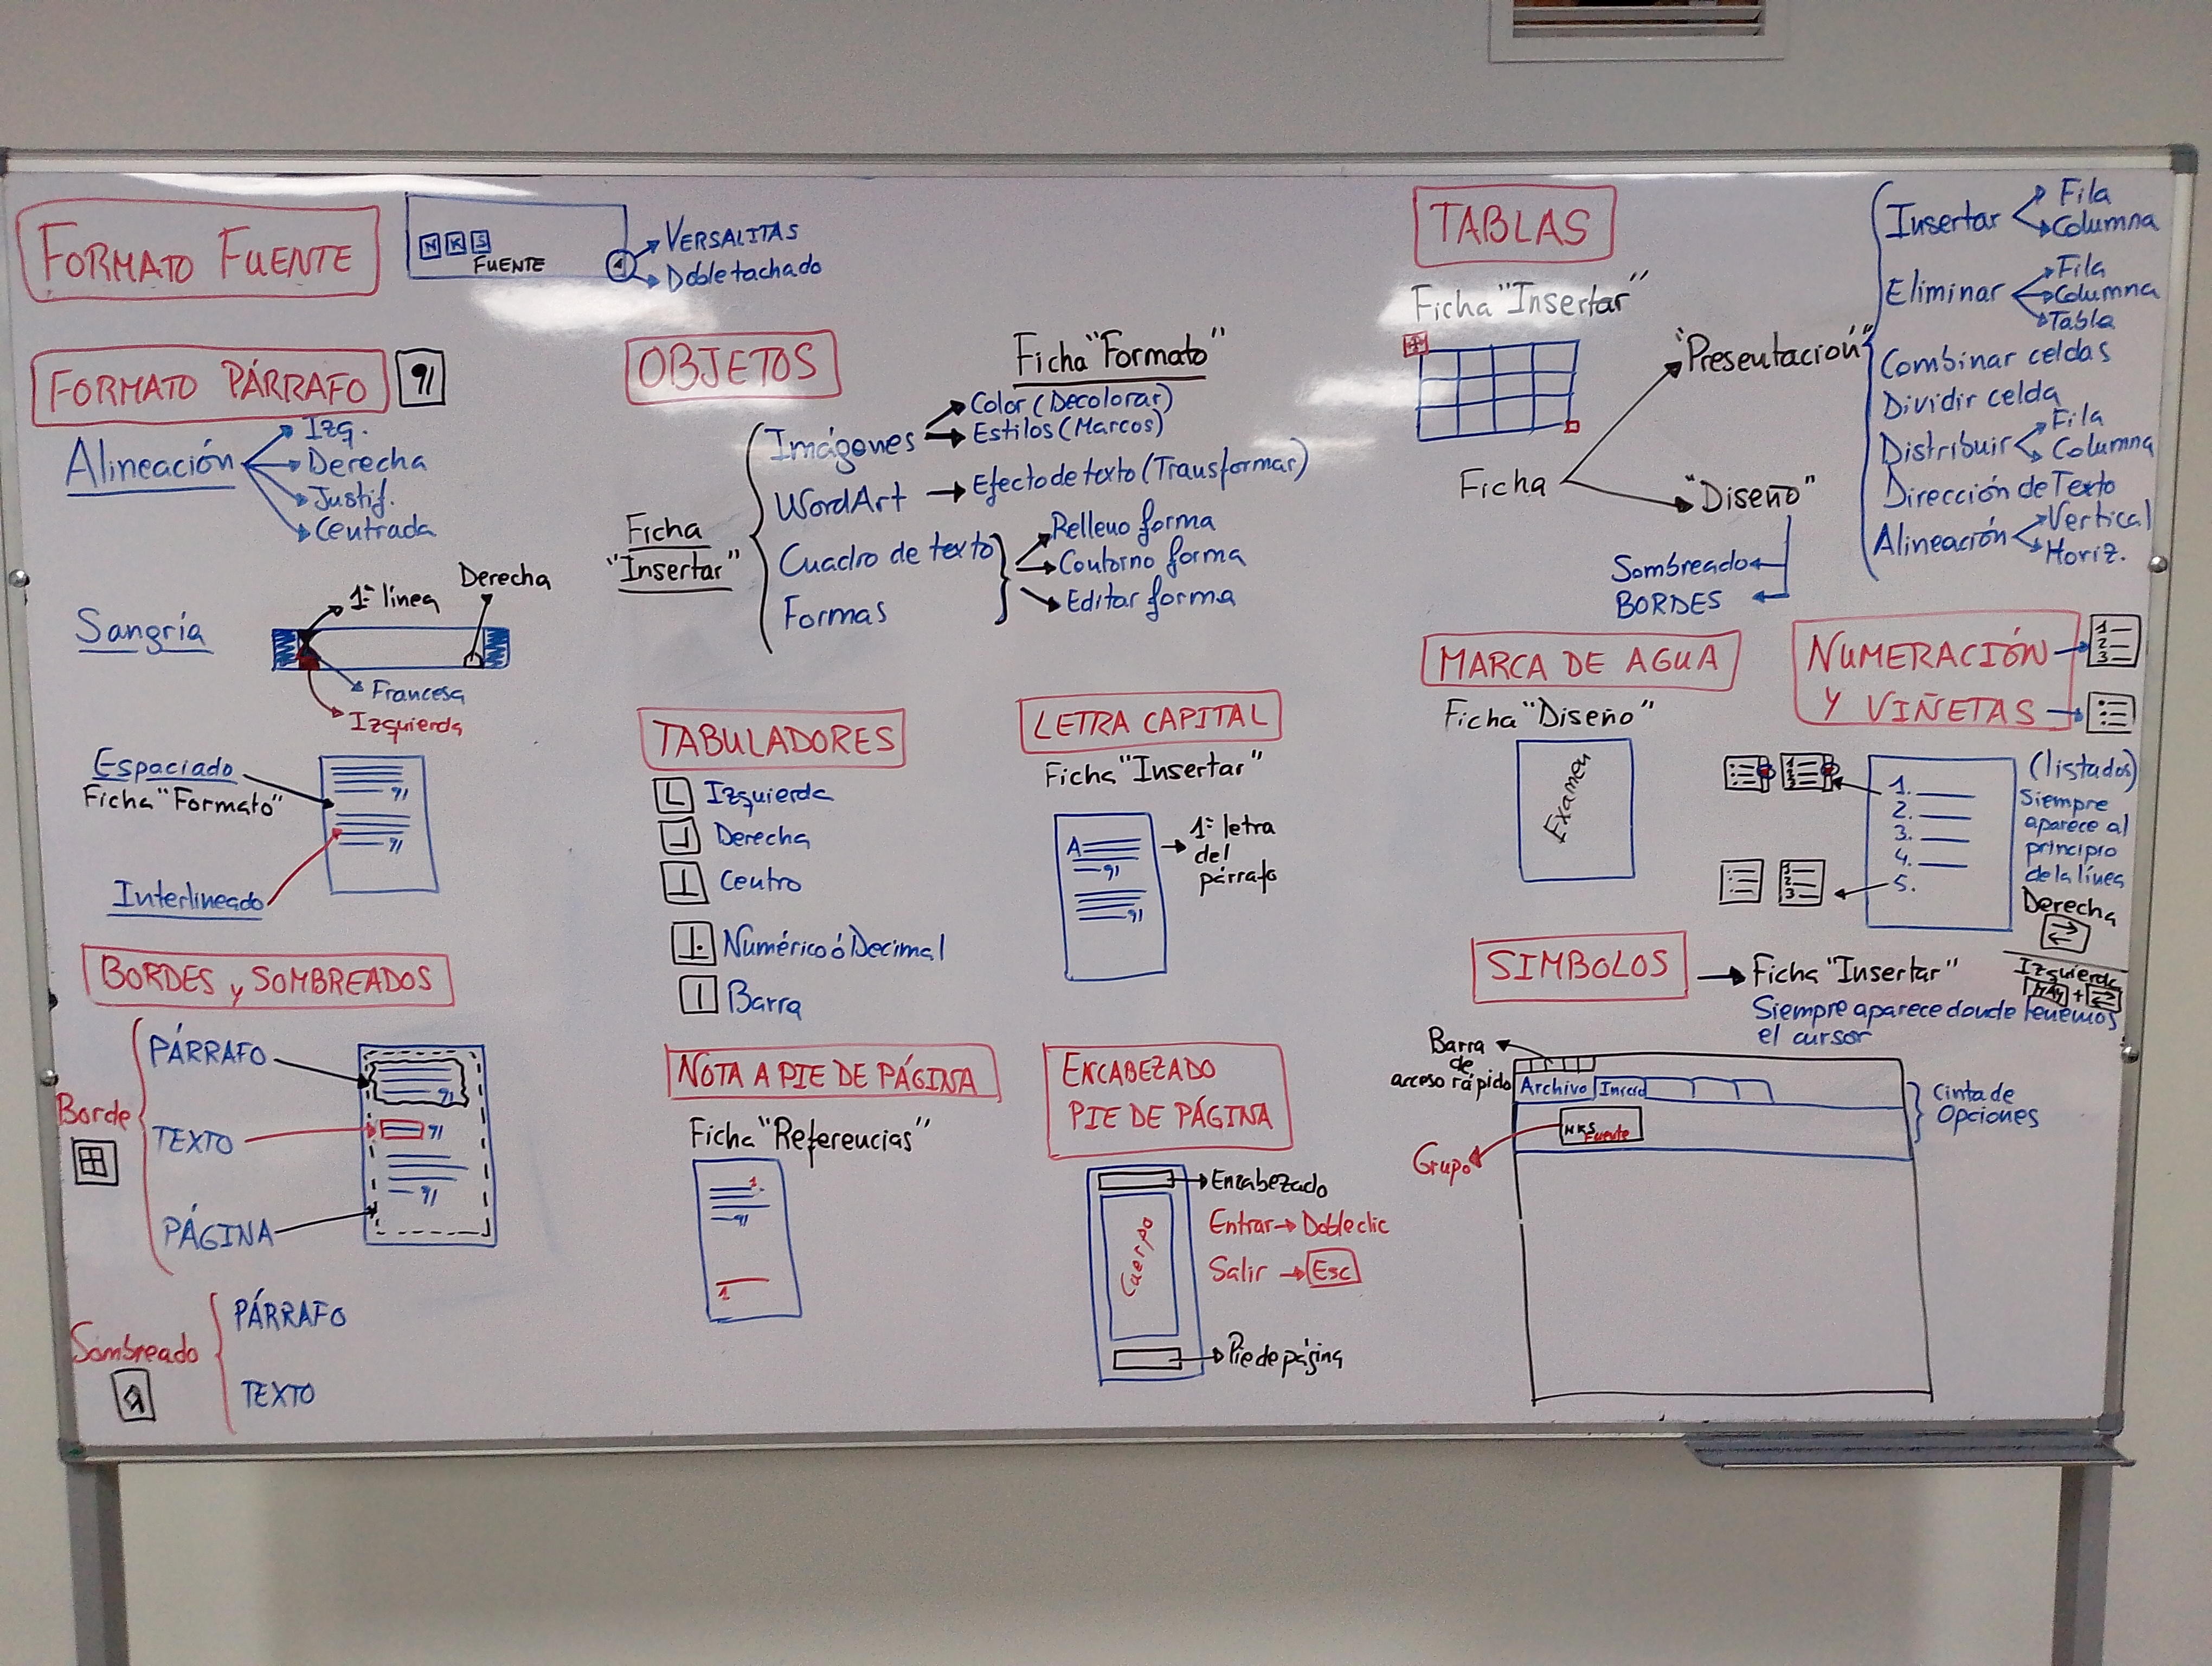 FORMATO FUENTE
N K S
FUENTE
VERSALITAS
Doble tachado
FORMATO PÁRRAFO
Alineación
Izq.
Derecha
Justif.
Centrada
Sangría
1ª línea
Derecha
Francesa
Izquierda
Espaciado
Ficha "Formato"
Interlineado
BORDES y SOMBREADOS
Borde
PÁRRAFO
TEXTO
PÁGINA
Sombreado
PÁRRAFO
TEXTO
OBJETOS
Ficha "Formato"
Ficha
"Insertar"
Imágenes
Color (Decolorar)
Estilos (Marcos)
WordArt
Efecto de texto (Transformar)
Cuadro de texto
Formas
Relleno forma
Contorno forma
Editar forma
TABULADORES
Izquierda
Derecha
Centro
Numérico ó Decimal
Barra
LETRA CAPITAL
Ficha "Insertar"
A
1ª letra
del
párrafo
NOTA A PIE DE PÁGINA
Ficha "Referencias"
1
1
ENCABEZADO
PIE DE PÁGINA
Encabezado
Cuerpo
Entrar → Doble clic
Salir → Esc
Pie de página
TABLAS
Ficha "Insertar"
Ficha
"Presentación"
Insertar
Fila
Columna
Eliminar
Fila
Columna
Tabla
Combinar celdas
Dividir celda
Distribuir
Fila
Columna
Dirección de Texto
Alineación
Vertical
Horiz.
"Diseño"
Sombreado
BORDES
MARCA DE AGUA
Ficha "Diseño"
Examen
NUMERACIÓN
Y VIÑETAS
1
2
3
1
2
3
1.
2.
3.
4.
5.
1
2
3
(listados)
Siempre
aparece al
principio
de la línea
Derecha
Izquierda
MAY +
SIMBOLOS → Ficha "Insertar"
Siempre aparece donde tenemos
el cursor
Barra
de
acceso rápido
Archivo Inicio
N K S
Fuente
Grupo
Cinta de
Opciones